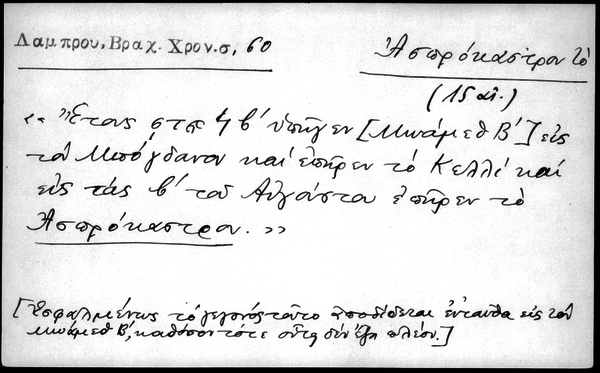 Λαμπρου, Βραχ. Χρον. σ, 60
Ἀσπρόκαστρον τὸ
(15 αἰ.)
« Ἔτους ϛ ϡ ϟ β´ ὑπῆγεν [Μωάμεθ Β´] εἰς
τὸν Μπόγδανον καὶ ἐπῆρεν τὸ Κελλὶ καὶ
εἰς τὰς β´ τοῦ Αὐγούστου ἐπῆρεν τὸ
Ἀσπρόκαστρον. »
[Ἐσφαλμένως τὸ γεγονὸς τοῦτο ἀποδίδεται ἐνταῦθα εἰς τὸν
Μωάμεθ Β´, καθόσον τότε οὗτος δὲν ἔζη πλέον.]